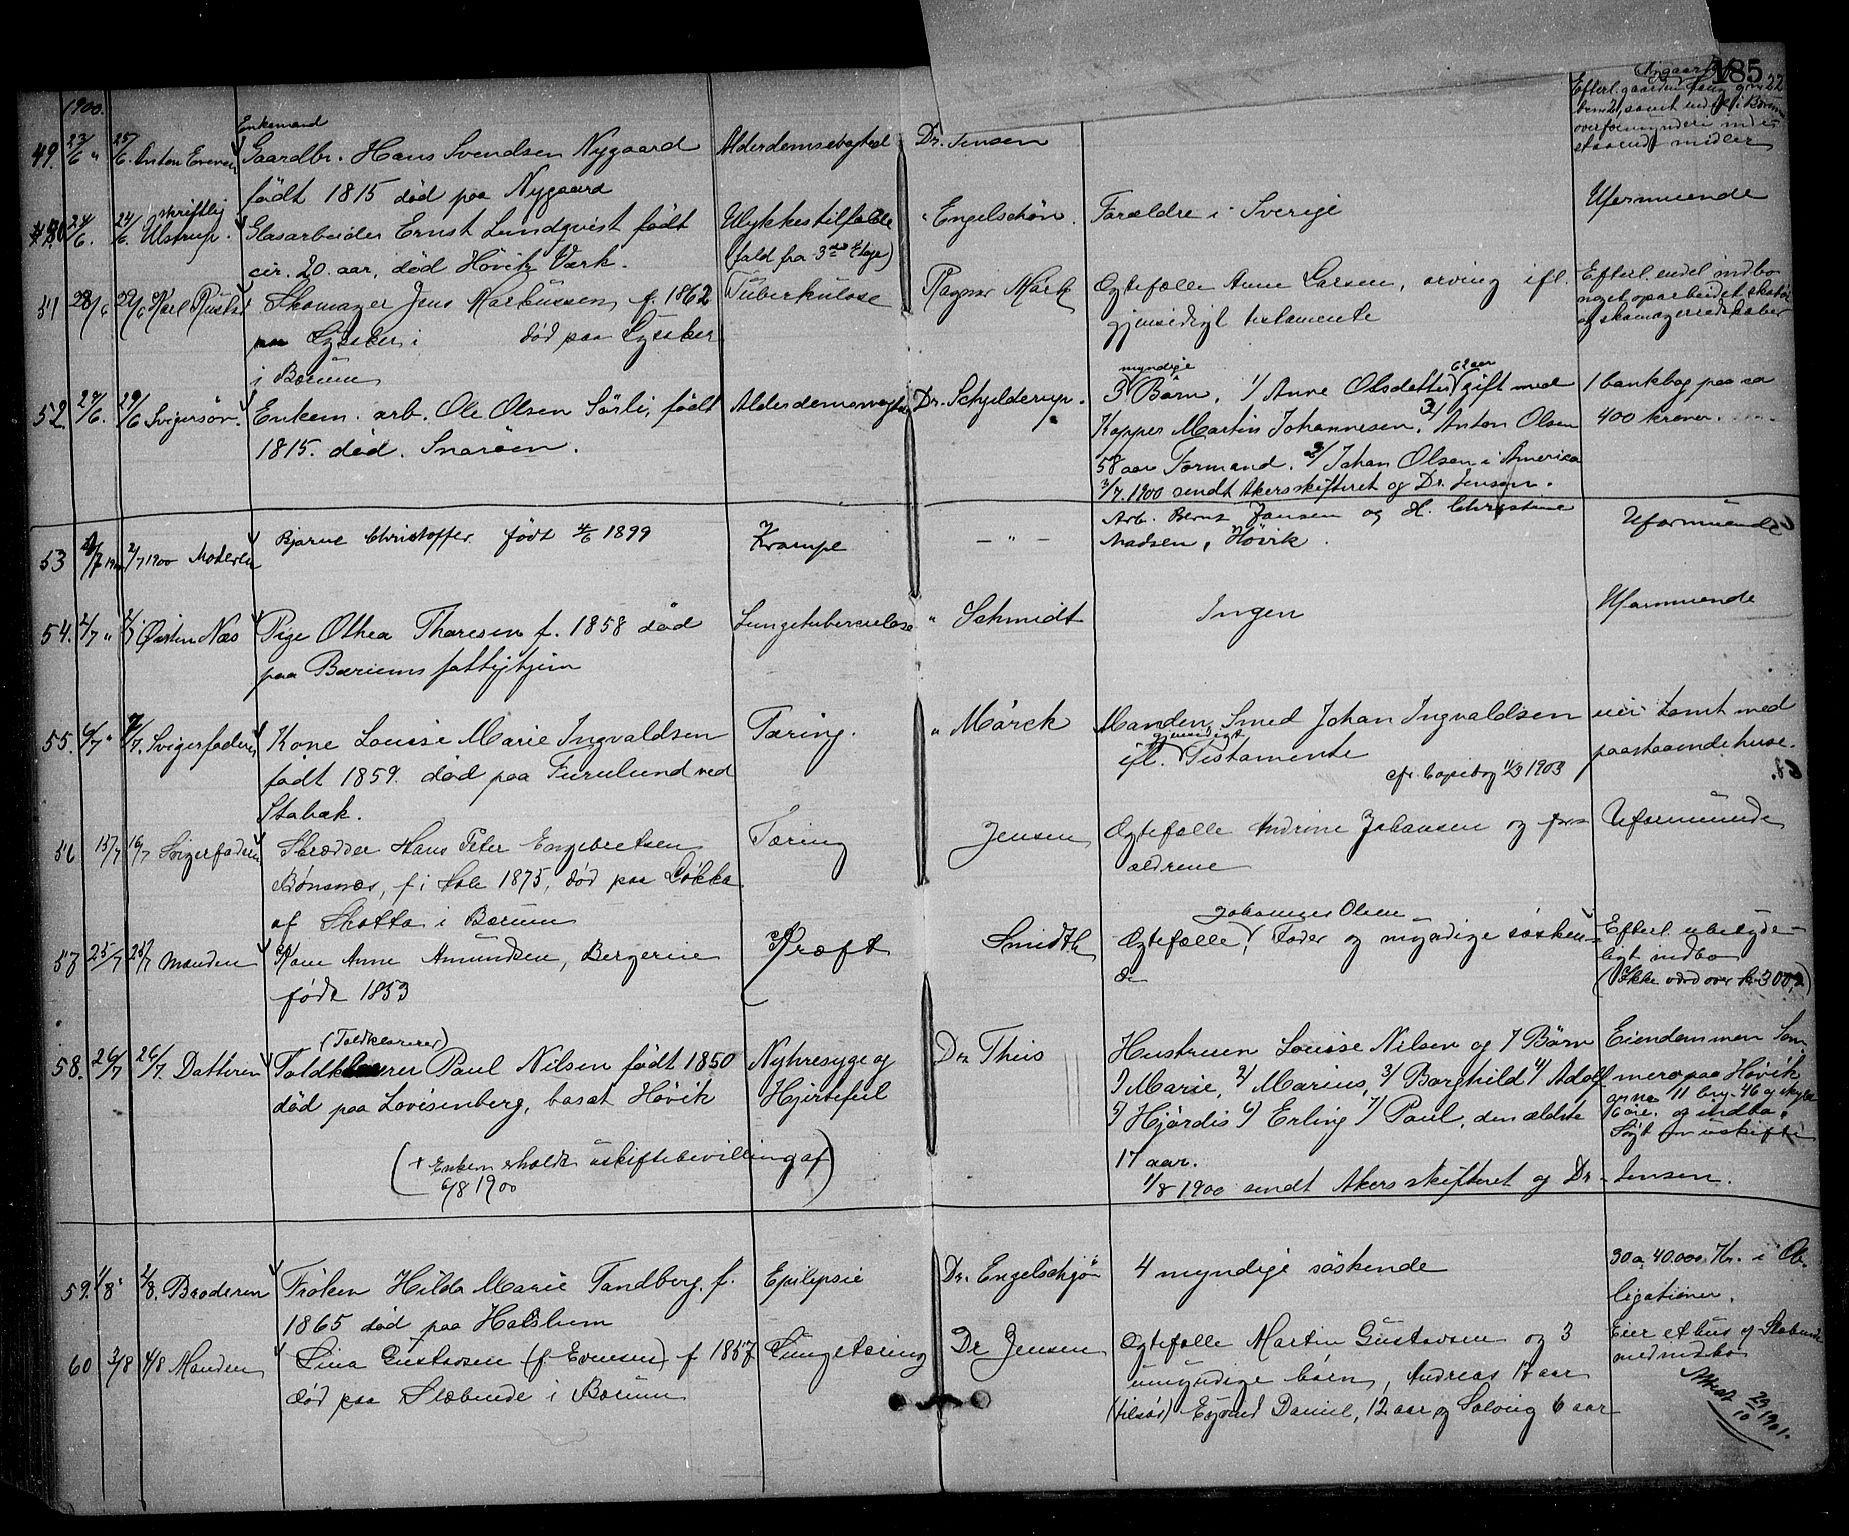 185
1900.
49. 23/6 " 25/6. Anton Evensen Enkemand
Gaardbr. Hans Svendsen Nygaard Alderdomssvaghed Dr. Jensen
født 1815 død paa Nygaard
Efterl. gaarden
samt endel i Bærum
overformynderi inde-
staaende midler
50 24/6. 24/6. skriftlig Ulstrup. Glasarbeider Ernst Lundqvist født Ulykkestilfælde " Engelschøn. Forældre i Sverige Uformuende
cir. 20 aar, død Høviks Værk. (fald fra 3die Etage)
51 28/6 29/6 Karl Rustad Skomager Jens Markussen, f. 1862 Tuberkulose Ragnar Mørk Ægtefælle Anne Larsen, arving ifl. Efterl. endel indbo
paa Lysaker i død paa Lysaker gjensidigt testamente noget oparbeidet skotøi
i Bærum og skomagerredskaber
52. 27/6. 29/6 Svigersøn. Enkem. arb. Ole Olsen Sørli, født Alderdomssvaghed Dr. Schjelderup. 3 myndige Børn, 1/ Anne Olsdatter 62 aar gift med 1 bankbog paa ca
1815. død. Snarøen. Kapper Martin Johannesen. 2/ Anton Olsen 400 kroner.
58 aar Formand. 3/ Johan Olsen i Amerika
3/7. 1900 sendt Akersskifteret og Dr. Jensen.
53 2/7 1900 Moderen Bjarne Christoffer født 4/6 1899 Krampe — " — Arb. Bernt Jansen og H. Christine Uformuende
Madsen, Høvik.
54. 2/7 " Øisten Næs Pige Othea Thoresen f. 1858 død Lungetuberculose " Schmidt Ingen Uformuende
paa Bærums fattighjem
55. 6/7 " 7/7. Svigerfaderen Kone Louise Marie Ingvaldsen Tæring. " Mørck Manden, Smed Johan Ingvaldsen eier tomt med
født 1859. død paa Furulund ved ifl. gjensidigt Testamente paastaaende huse.
Stabæk. cfr. Copibog 1/3 1903
56 15/7 16/7 Svigerfaderen Skrædder Hans Peter Engebretsen Tæring Jensen Ægtefælle Andrine Johansen og for- Uformuende
Bønsnæs, f. i Hole 1875, død paa Løkka ældrene
af Skotta i Bærum
57 25/7 25/7 Manden Kone Anne Amundsen, Bergerie Kræft Smidth Ægtefælle Johannes Olsen, Fader og myndige søsken- Efterl. ubetyde-
født 1853 de ligt indbo
(Ikke værd over kr 300,00)
58. 26/7 26/7. Datteren (Toldklarerer) Paul Nilsen født 1850 Nyresyge og Dr. Thiis Hustruen Louise Nilsen og 7 Børn Eiendommen Som-
død paa Lovisenberg, bosat Høvik Hjertefeil 1/ Marie, 2/ Marius, 3/ Borghild 4/ Adolf mero paa Høvik
5/ Hjørdis 6/ Erling 7/ Paul, den ældste gno 11 brg. 46 og skyld
16 øre. og indbo.
17 aar. Søgt om uskifte
(+ Enken erholdt uskiftebevilling af 6/8 1900)
1/8 1900 sendt Akers skifteret og Dr. Jensen.
59. 1/8 2/8. Broderen Frøken Hilda Marie Tandberg. f. Epilepsie Dr. Engelschjøn 4 myndige søskende 30 a 40000 Kr. i Ob-
1865 død paa Halshum ligationer.
60 3/8 4/8 Manden Lina Gustavsen (f. Evensen) f 1857 Lungetæring Dr Jensen Ægtefælle Martin Gustavsen og 3 Eier et hus of Slæbende
død paa Slæbende i Bærum umyndige børn, Andreas 17 aar med indbo
(tilsøs) Eyvind Daniel, 12 aar og Solveig 6 aar
Attest 29/10 1901.